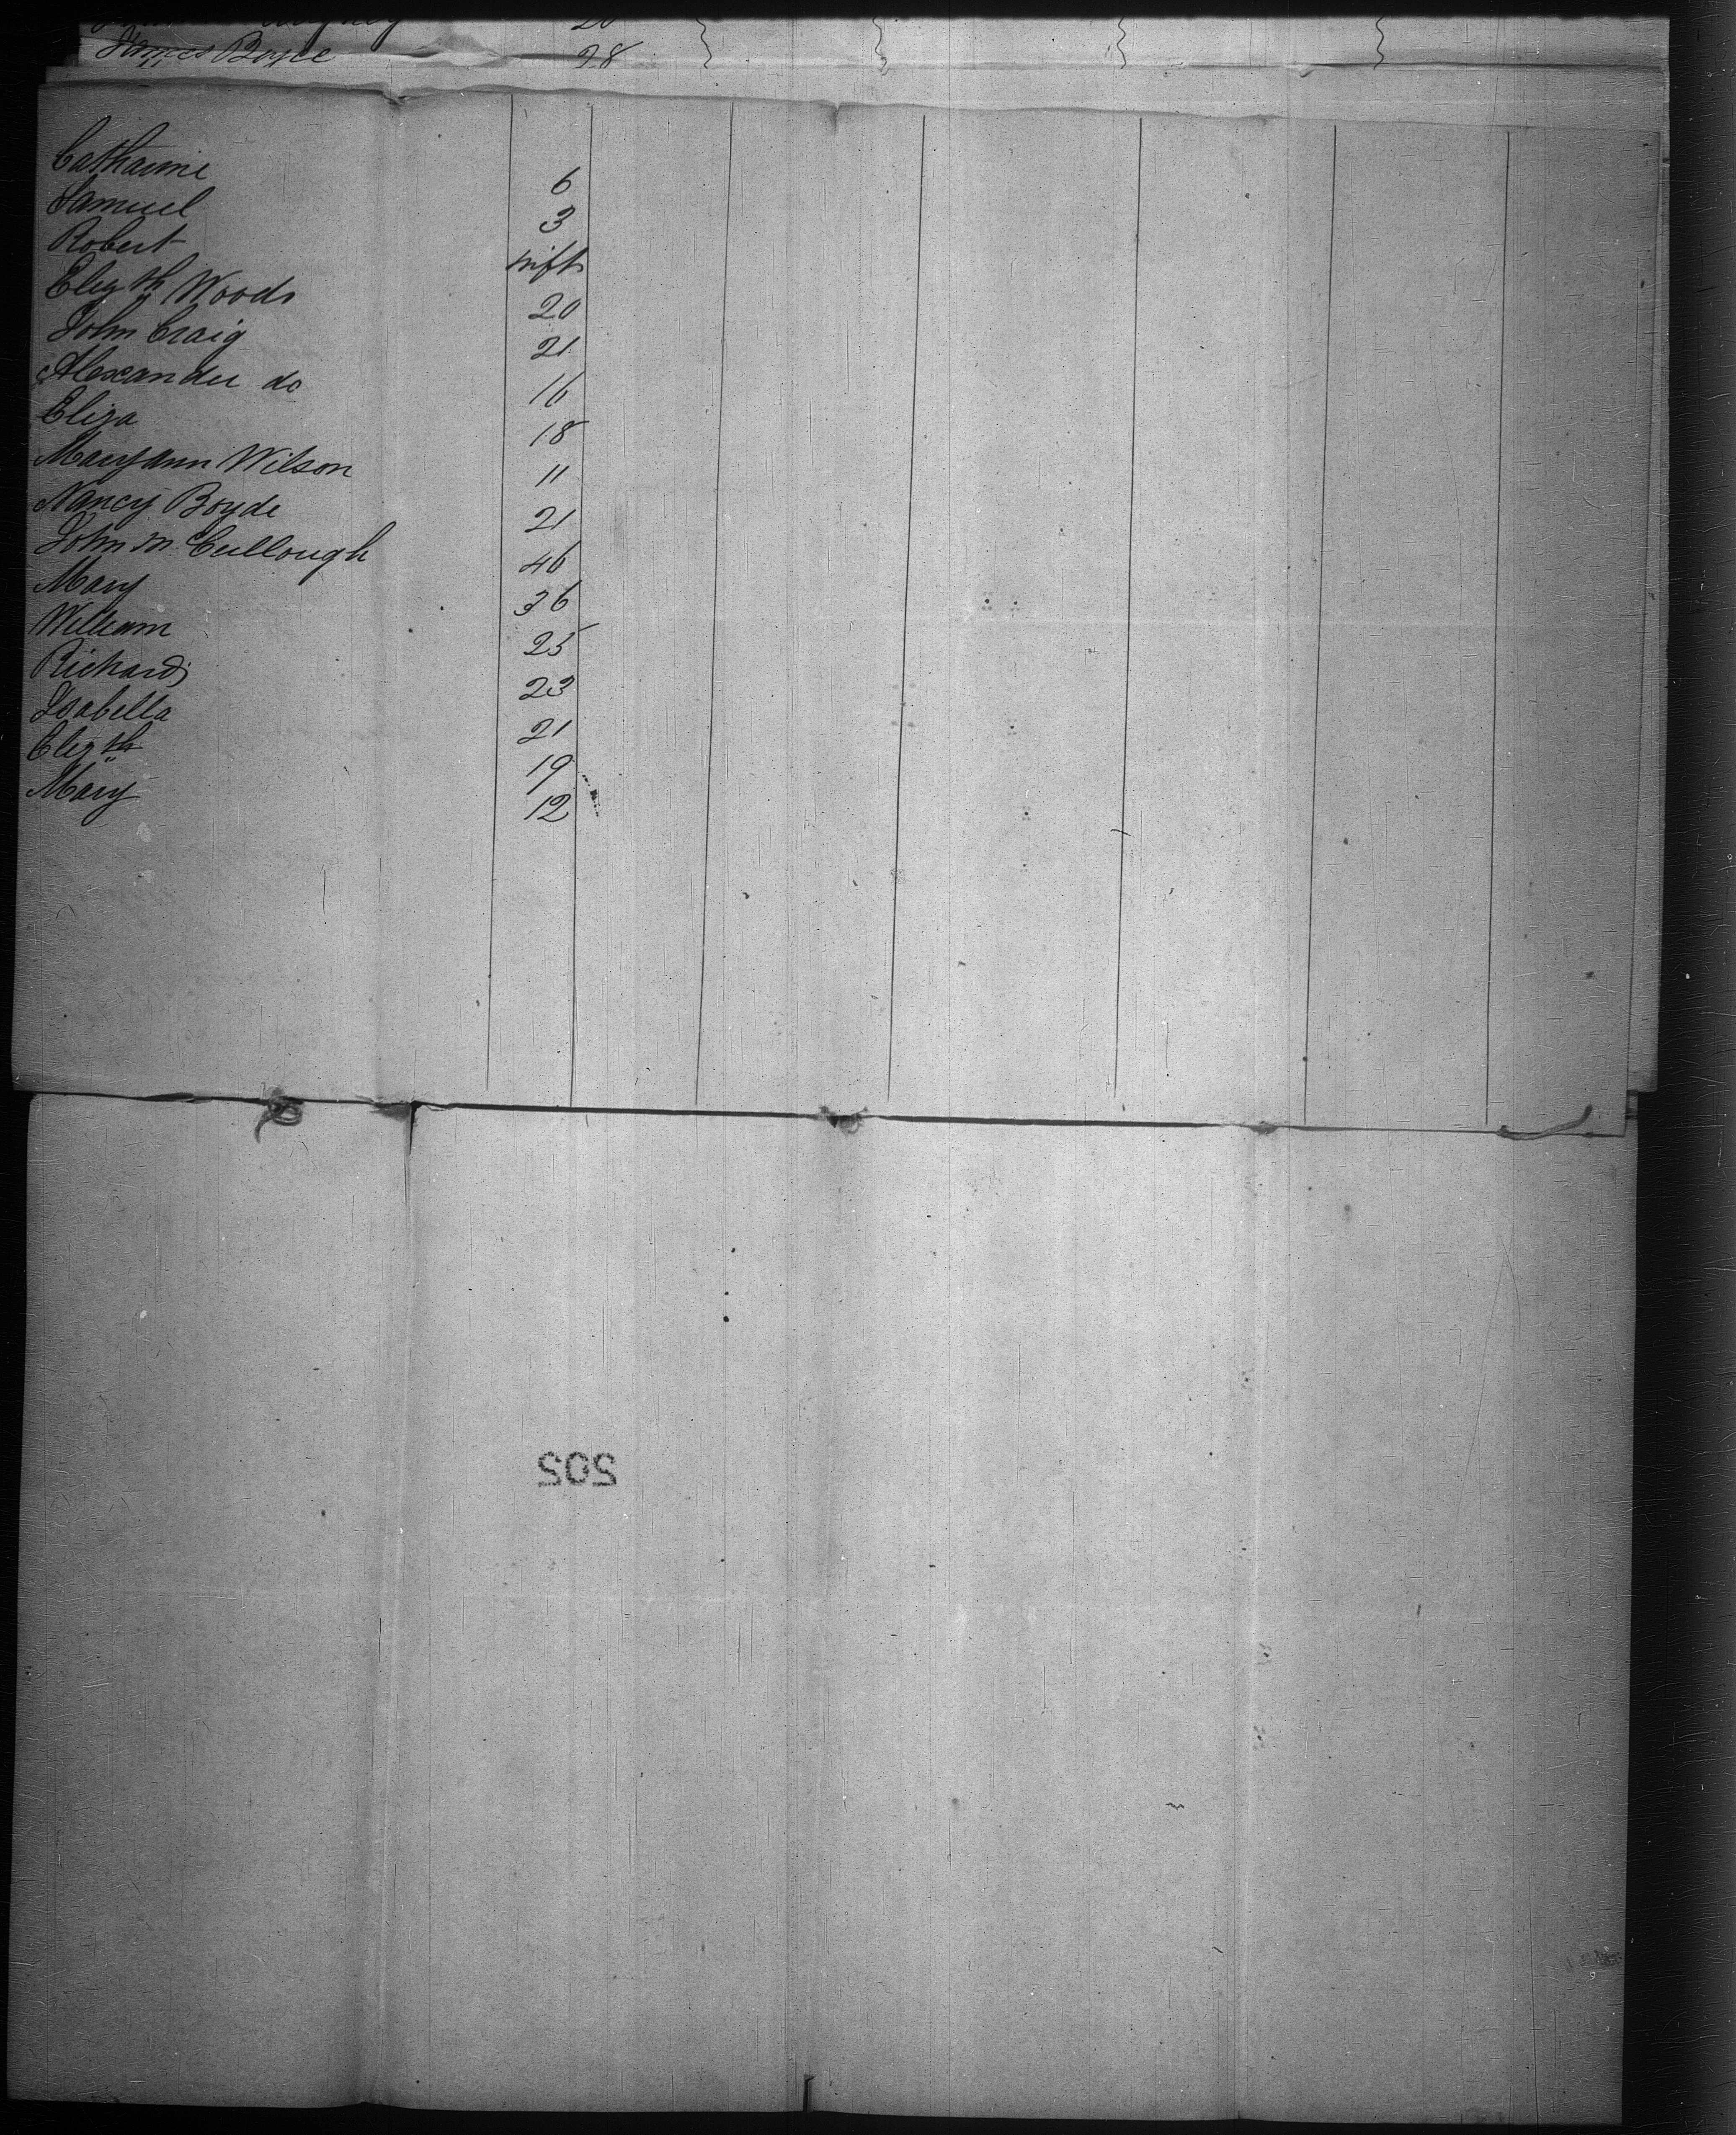 James Boyle 28
Catharine 6
Samuel 3
Robert inft
Elizth Woods 20
John Craig 21
Alexander do 16
Eliza 18
Maryann Wilson 11
Nancy Boyde 21
John McCullough 46
Mary 36
William 25
Richard 23
Isabella 21
Elizth 19
Mary 12
502